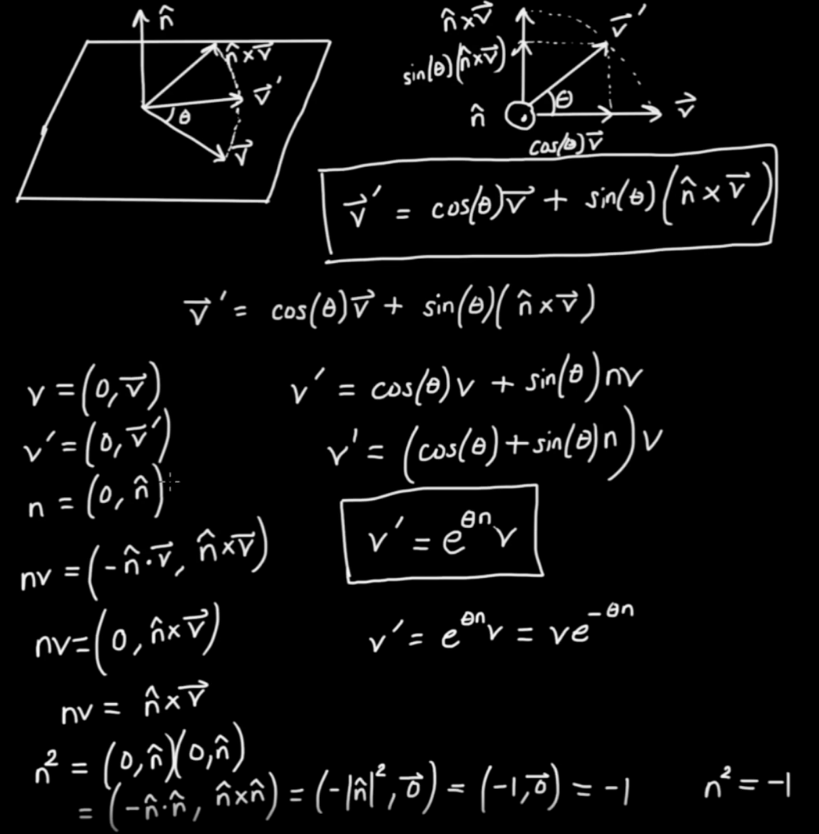 n̂
n̂×v⃗
v⃗′
θ
v⃗
n̂×v⃗
v⃗′
sin(θ)(n̂×v⃗)
θ
n̂
v⃗
cos(θ)v⃗
v⃗′ = cos(θ)v⃗ + sin(θ)(n̂×v⃗)
v⃗′ = cos(θ)v⃗ + sin(θ)(n̂×v⃗)
v = (0, v⃗)
v′ = (0, v⃗′)
n = (0, n̂)
nv = (-n̂·v⃗, n̂×v⃗)
nv = (0, n̂×v⃗)
nv = n̂×v⃗
v′ = cos(θ)v + sin(θ)nv
v′ = (cos(θ)+sin(θ)n)v
v′ = e^{θn}v
v′ = e^{θn}v = ve^{-θn}
n² = (0,n̂)(0,n̂)
= (-n̂·n̂, n̂×n̂) = (-|n̂|², 0⃗) = (-1, 0⃗) = -1
n² = -1